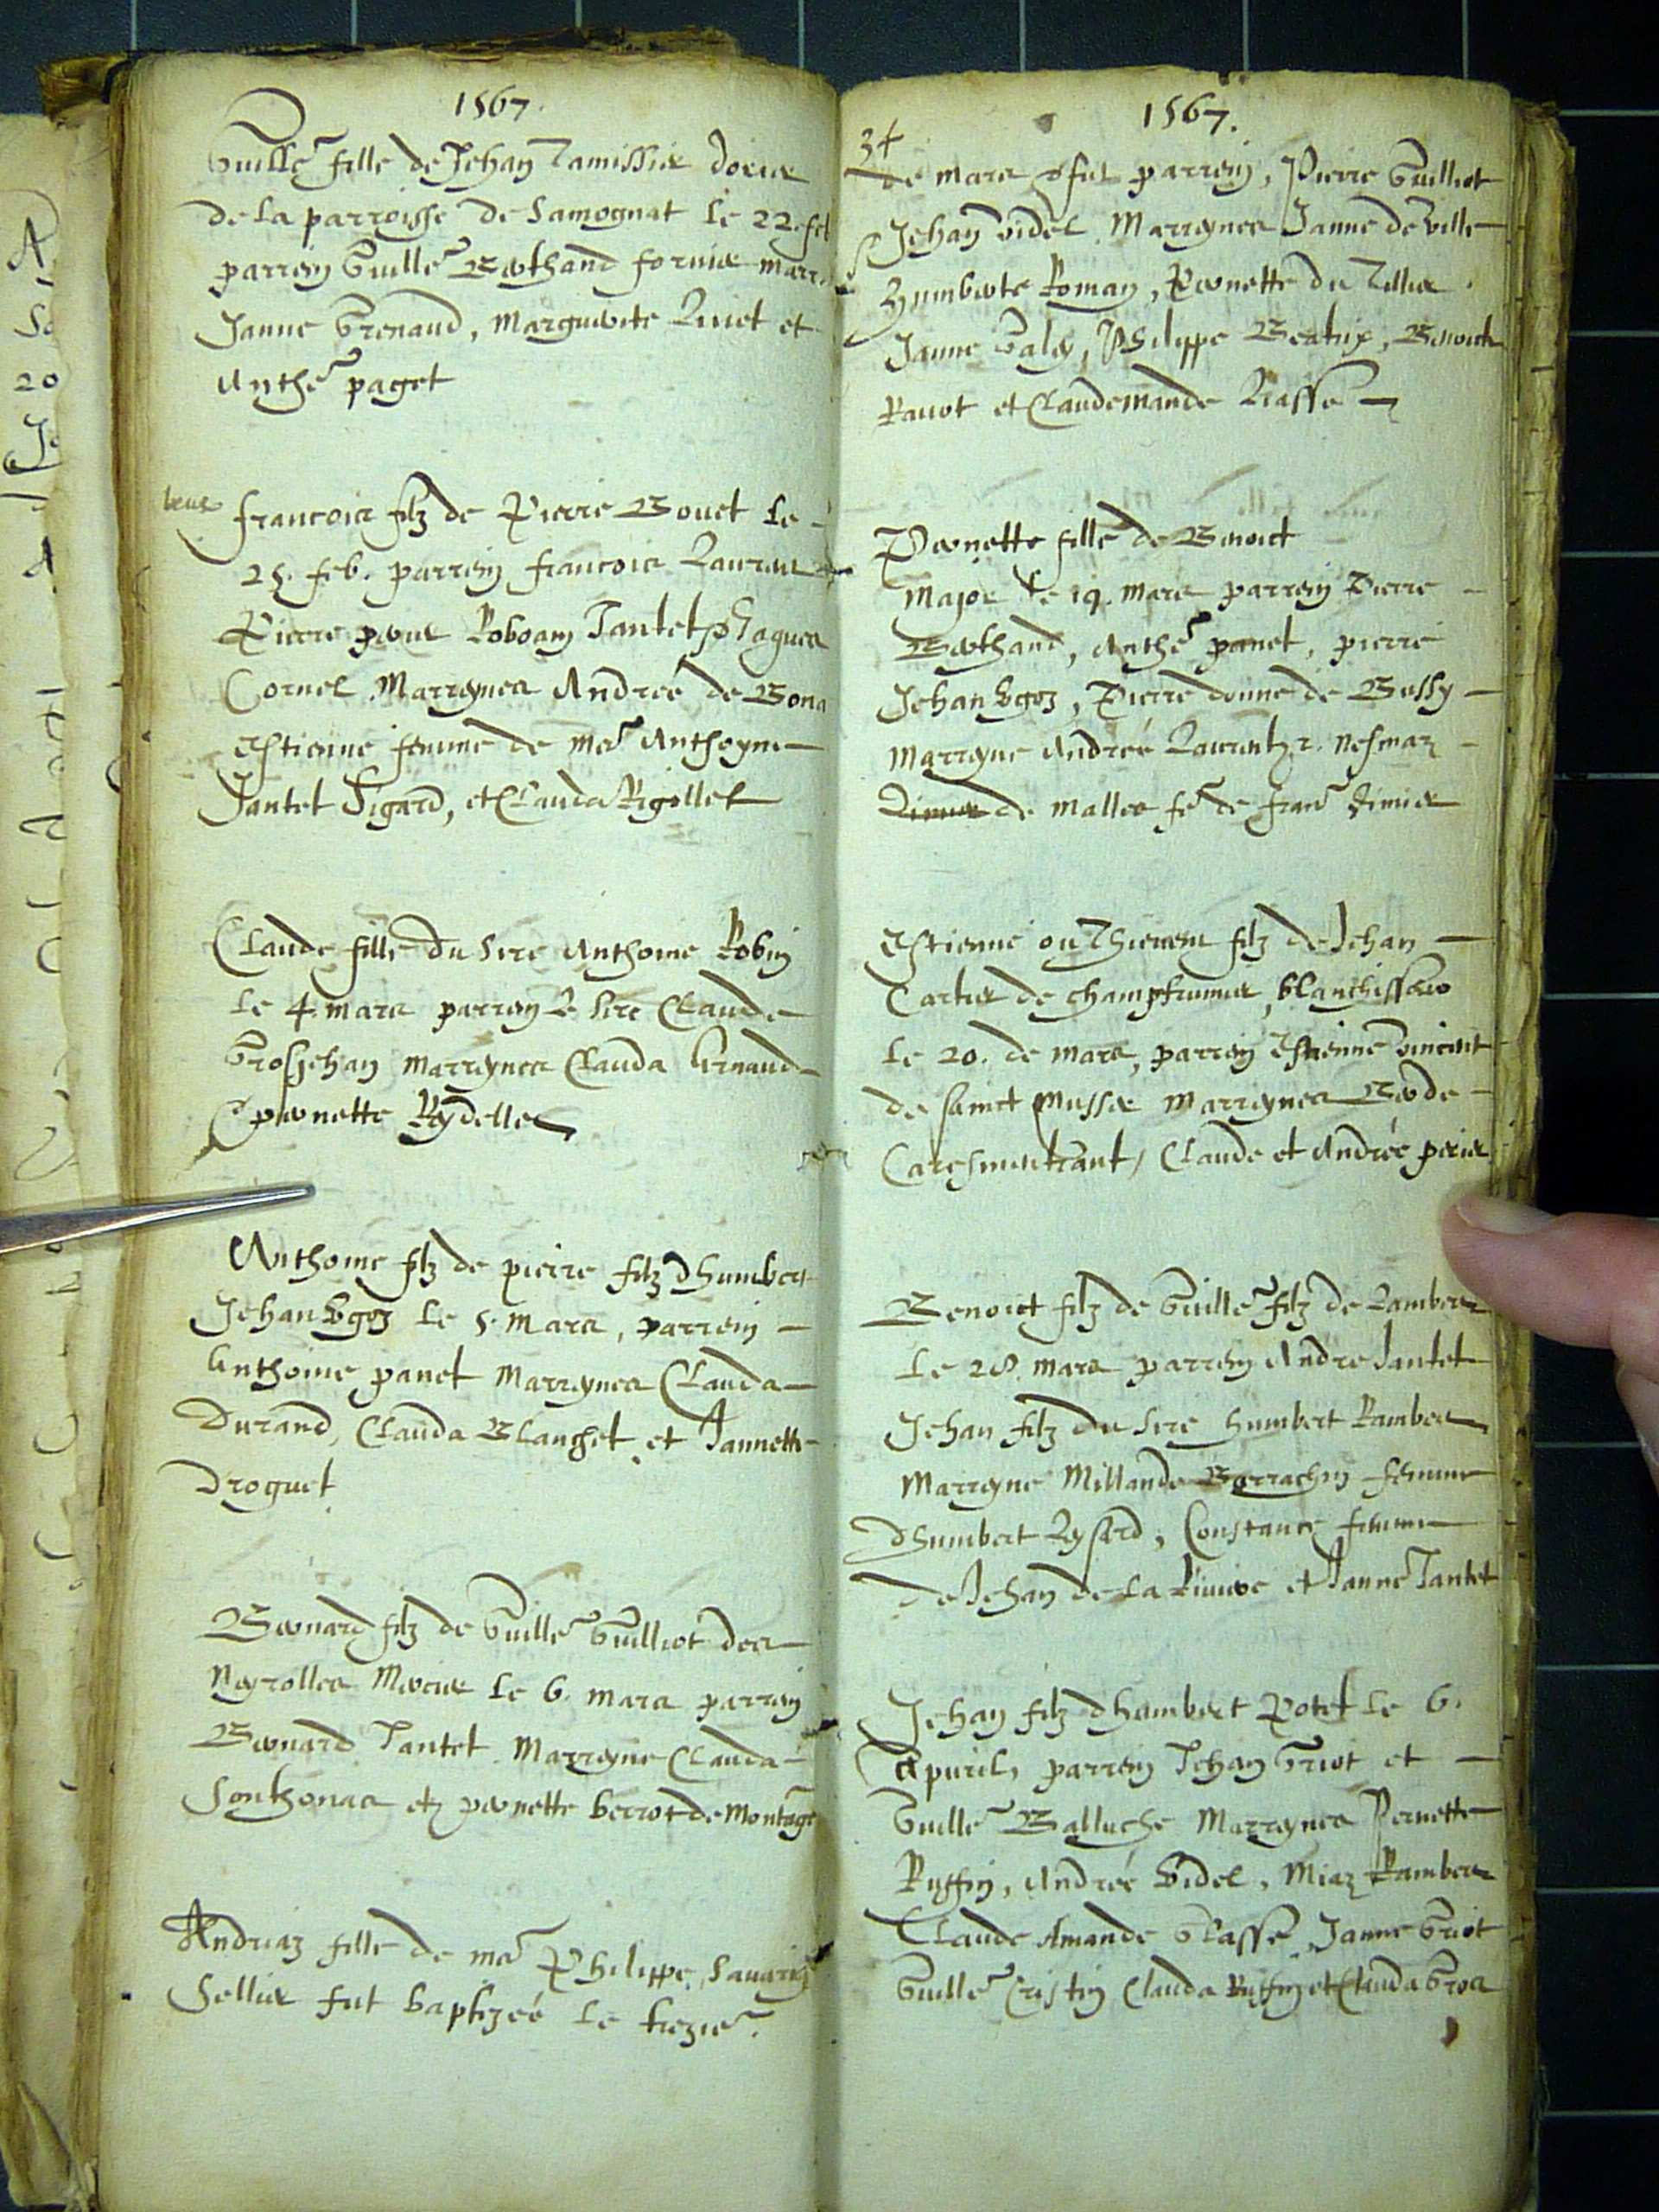 1567.
Guille fille de Jehan Tamissier Dorier
de la parroisse de Samognat le 22. feb
parrein Guille Berthand fornier marr.
Janne Grenaud, Marguerite Livet et
Anthe paget
francois filz de Pierre Bouet le
25. feb. parrein francois Laurens
Pierre perrier Roboam Tantet Jaques
Cornel. Marreynes Andreé de Bona
Estienne femme de me Anthoyne
Jantet Sigard, et Clauda Rigollet
Claude fille du Sire Anthoine Robin
le 4. mars parrein le Sire Claude
Grosjehan marreynes Clauda Arnaud
pernette Reydellet
Anthoine filz de pierre filz dhumbert
Jehan Egoz le 5. mars, parrein
Anthoine panet Marreynes Clauda
Durand, Clauda Blanchet et Jannette
Droguet
Bernard filz de Guille Guilliot des
Neyrolles Mercier le 6. mars parrein
Bernard Tantet. Marreyne Clauda
Sonthonas et pernette berrot de Montage
Andriaz fille de me Philippe Sauarin
Sellier fut baptizeé le trezie.
1567.
34
de mars fut parrein, Pierre Guilliot
Jehan Videl. Marreynes Janne de Ville
Humberte Roman, Pernette du Tillier
Janne Galey, Philippe Beatrix, Benoicte
Rauot et Claudemande Liasse
Pernette fille de Benoict
Major le 19. mars parrein Pierre
Berthand, Anthe panet, pierre
Jehan Egoz, Pierre donne de Bussy
Marreyne Andreé Laurentz. Nesmaz
de malles fe de fran Limier
Estienne ou Thieuent filz de Jehan
Cartier de champfrumier, blanchisseur
le 20. de mars, parrein Estienne Vincent
de Sainct Mussier Marreynes Berde
Caresmentrant, Claude et Andreé perier
Benoict filz de Guille filz de Lambert
le 28. mars parrein Andre Jantet
Jehan filz du Sire humbert Rambert
Marreyne Millande Berrachin femme
dhumbert Leyserd, Constance femme
de Jehan de la Riuiere et Janne Tantet
Jehan filz dhumbert Potet le 6.
Apuril, parrein Jehan Griot et
Guille Balluche Marreynes Pernette
Ruffin, Andreé Videl, Miaz Rambert
Claude Amande Glasse Janne Griot
Guille Cristin Clauda Ruffin et Clauda Gros